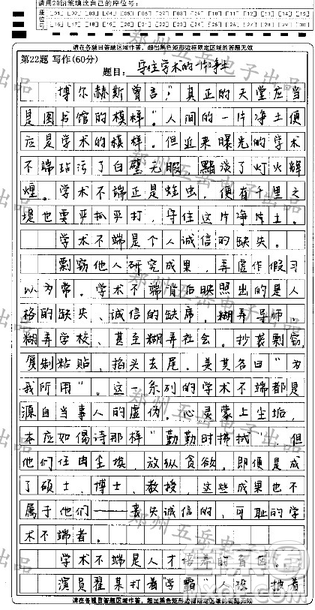 请在各题目的答题区域内作答，超出黑色矩形边框限定区域的答案无效
第22题 写作(60分)
题目： 守住学术的一片净土
博尔赫斯曾言："真正的天堂应当
是图书馆的模样。"人间的一片净土便
应是学术的模样。但近来曝光的学术
不端玷污了白壁无暇，黯淡了灯火辉
煌。学术不端正是蛀虫，便有
也要 守住这片净土。
学术不端是个人诚信的缺失。
剽窃他人研究成果，弄虚作假习
以为常。学术不端背后映照出的是人
格的缺失、诚信的缺席，糊弄导师、
糊弄学校、甚至糊弄社会。抄袭剽窃、
复制粘贴、掐头去尾，美其名曰"为
我所用"。这一系列的学术不端都是
源自当事人的虚伪。心灵蒙上尘垢，
本应如偈诗那样"勤勤时拂拭"，但
他们任由尘埃，放纵贪欲，即便是成
了硕士、博士、教授，这些成果也不
属于他们——丧失诚信的、可耻的学
术不端者。
学术不端是人才
演员翟某打着学霸、人设，披着
请在各题目的答题区域内作答，超出黑色矩形边框限定区域的答案无效